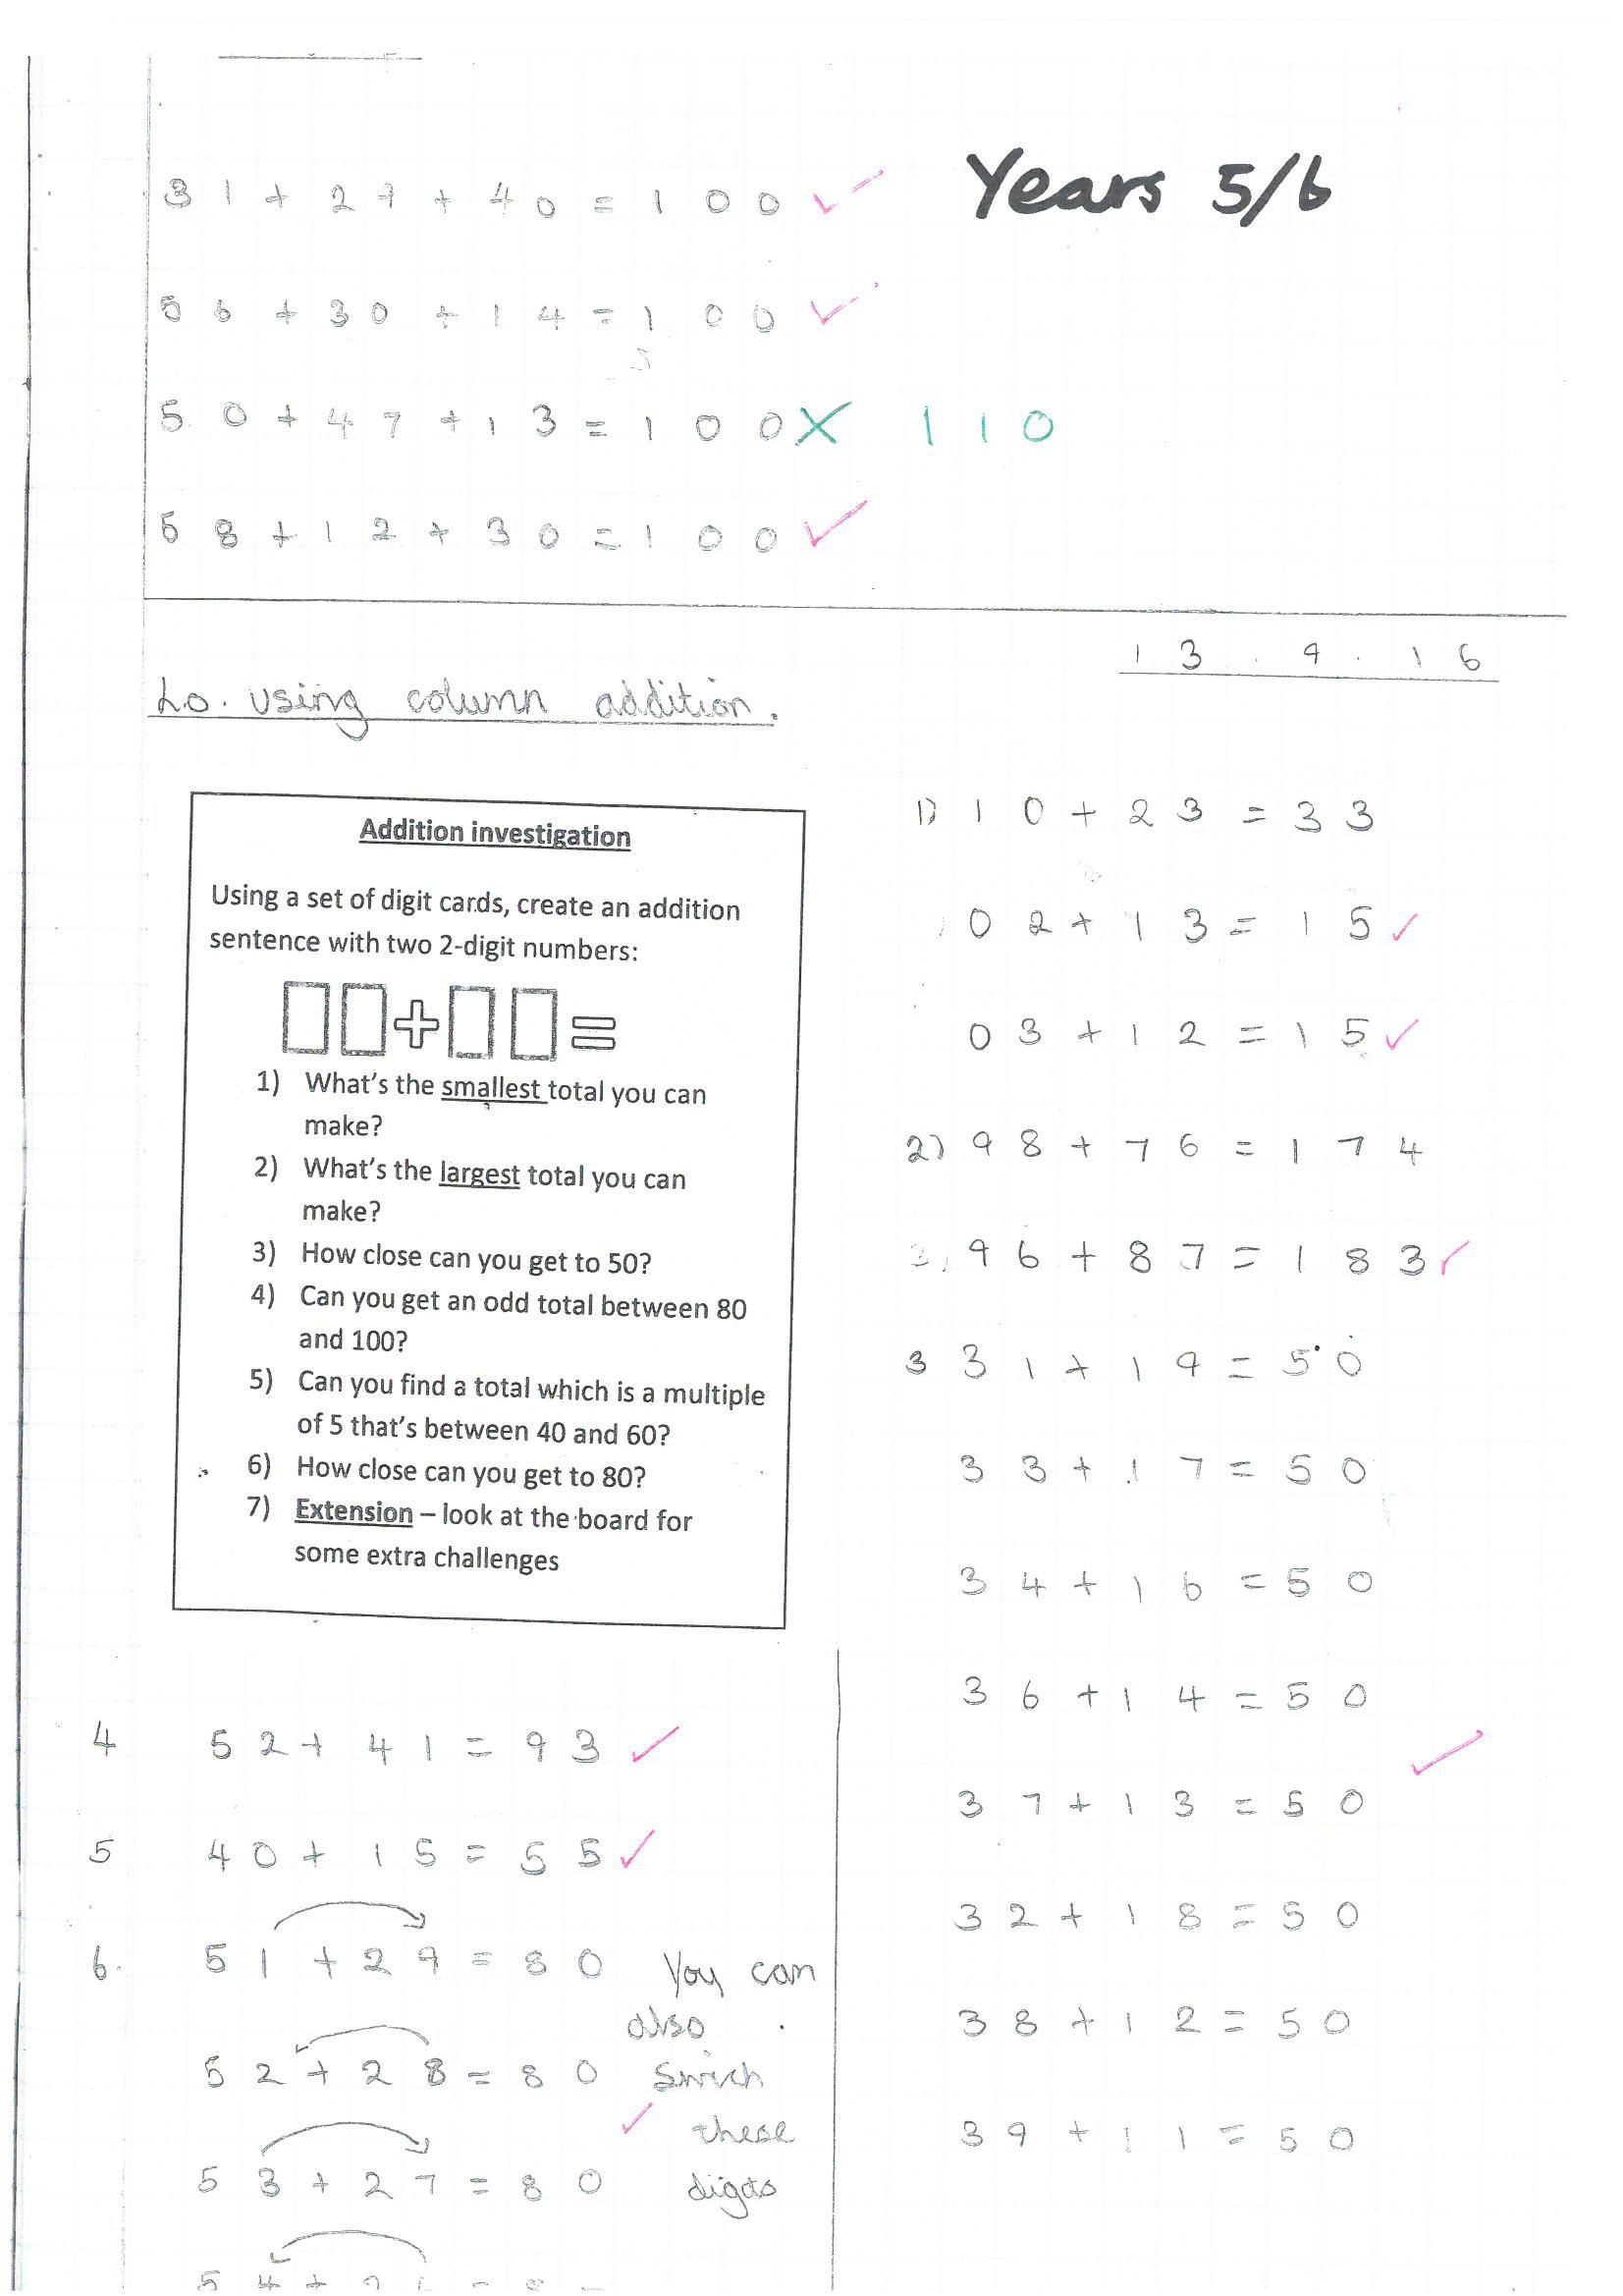 31+27+40=100
Years 5/6
56+30+14=100
50+47+13=100 110
58+12+30=100
13.9.16
Lo. Using column addition.
Addition investigation
Using a set of digit cards, create an addition
sentence with two 2-digit numbers:
+ =
1) What's the smallest total you can
make?
2) What's the largest total you can
make?
3) How close can you get to 50?
4) Can you get an odd total between 80
and 100?
5) Can you find a total which is a multiple
of 5 that's between 40 and 60?
6) How close can you get to 80?
7) Extension – look at the board for
some extra challenges
1) 10+23=33
02+13=15
03+12=15
2) 98+76=174
96+87=183
3 31+19=50
33+17=50
34+16=50
36+14=50
37+13=50
32+18=50
38+12=50
39+11=50
4 52+41=93
5 40+15=55
6. 51+29=80
52+28=80
53+27=80
You can
also
swich
these
digits